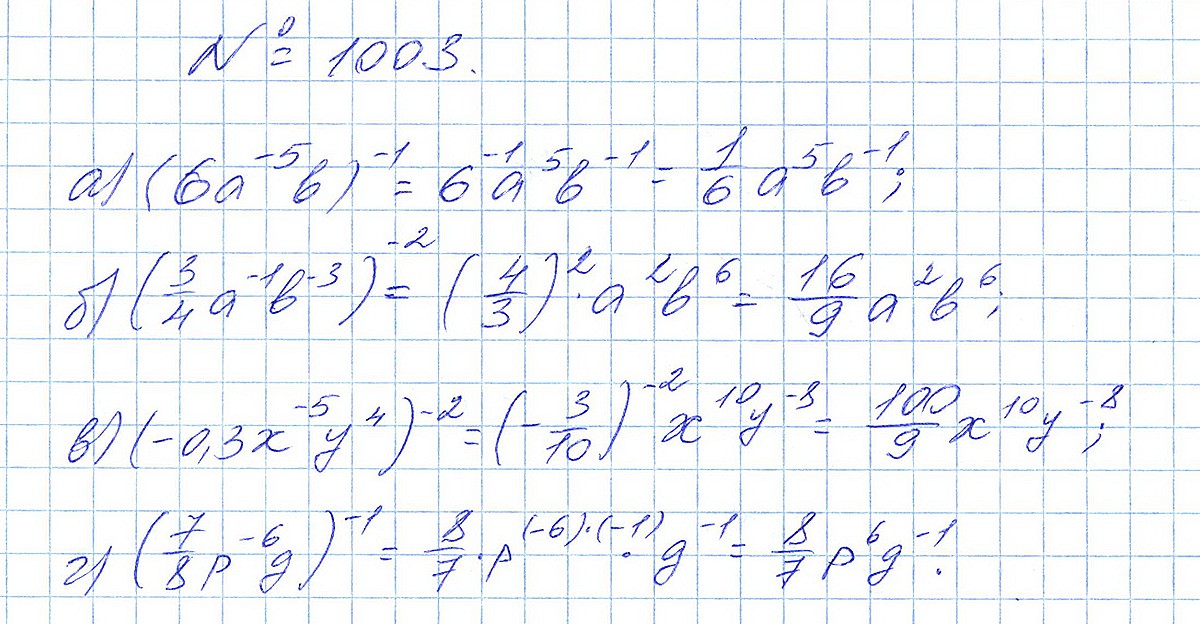 № 1003.
а) (6a⁻⁵b)⁻¹ = 6⁻¹a⁵b⁻¹ = 1/6 a⁵b⁻¹;
б) (3/4 a⁻¹b⁻³)⁻² = (4/3)² · a²b⁶ = 16/9 a²b⁶;
в) (-0,3x⁻⁵y⁴)⁻² = (-3/10)⁻² x¹⁰y⁻⁸ = 100/9 x¹⁰y⁻⁸;
г) (7/8 p⁻⁶g)⁻¹ = 8/7 · p⁽⁻⁶⁾·⁽⁻¹⁾ · g⁻¹ = 8/7 p⁶g⁻¹.